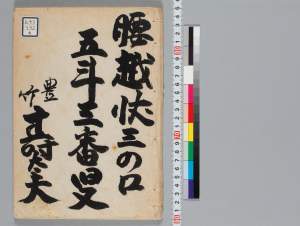 腰越状三の口
五斗三番叟
豊竹
寿太夫